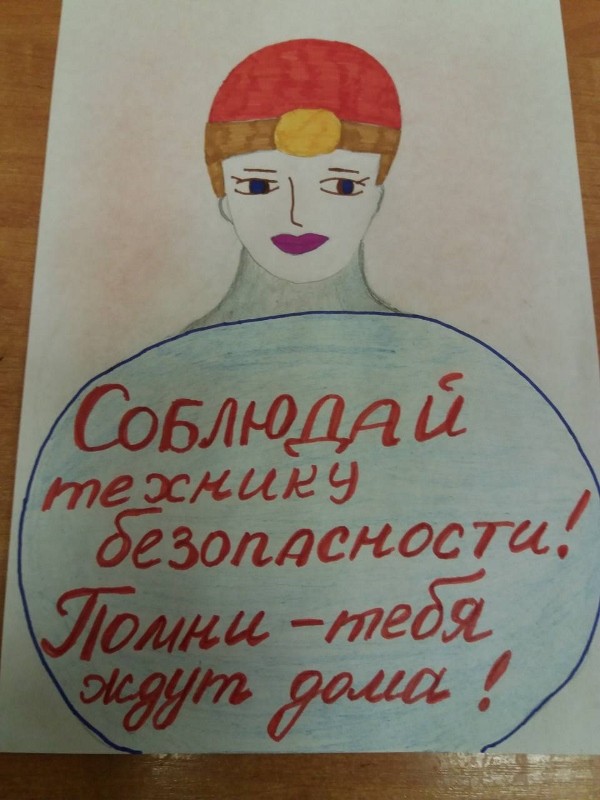 Соблюдай
технику
безопасности!
Помни - тебя
ждут дома!